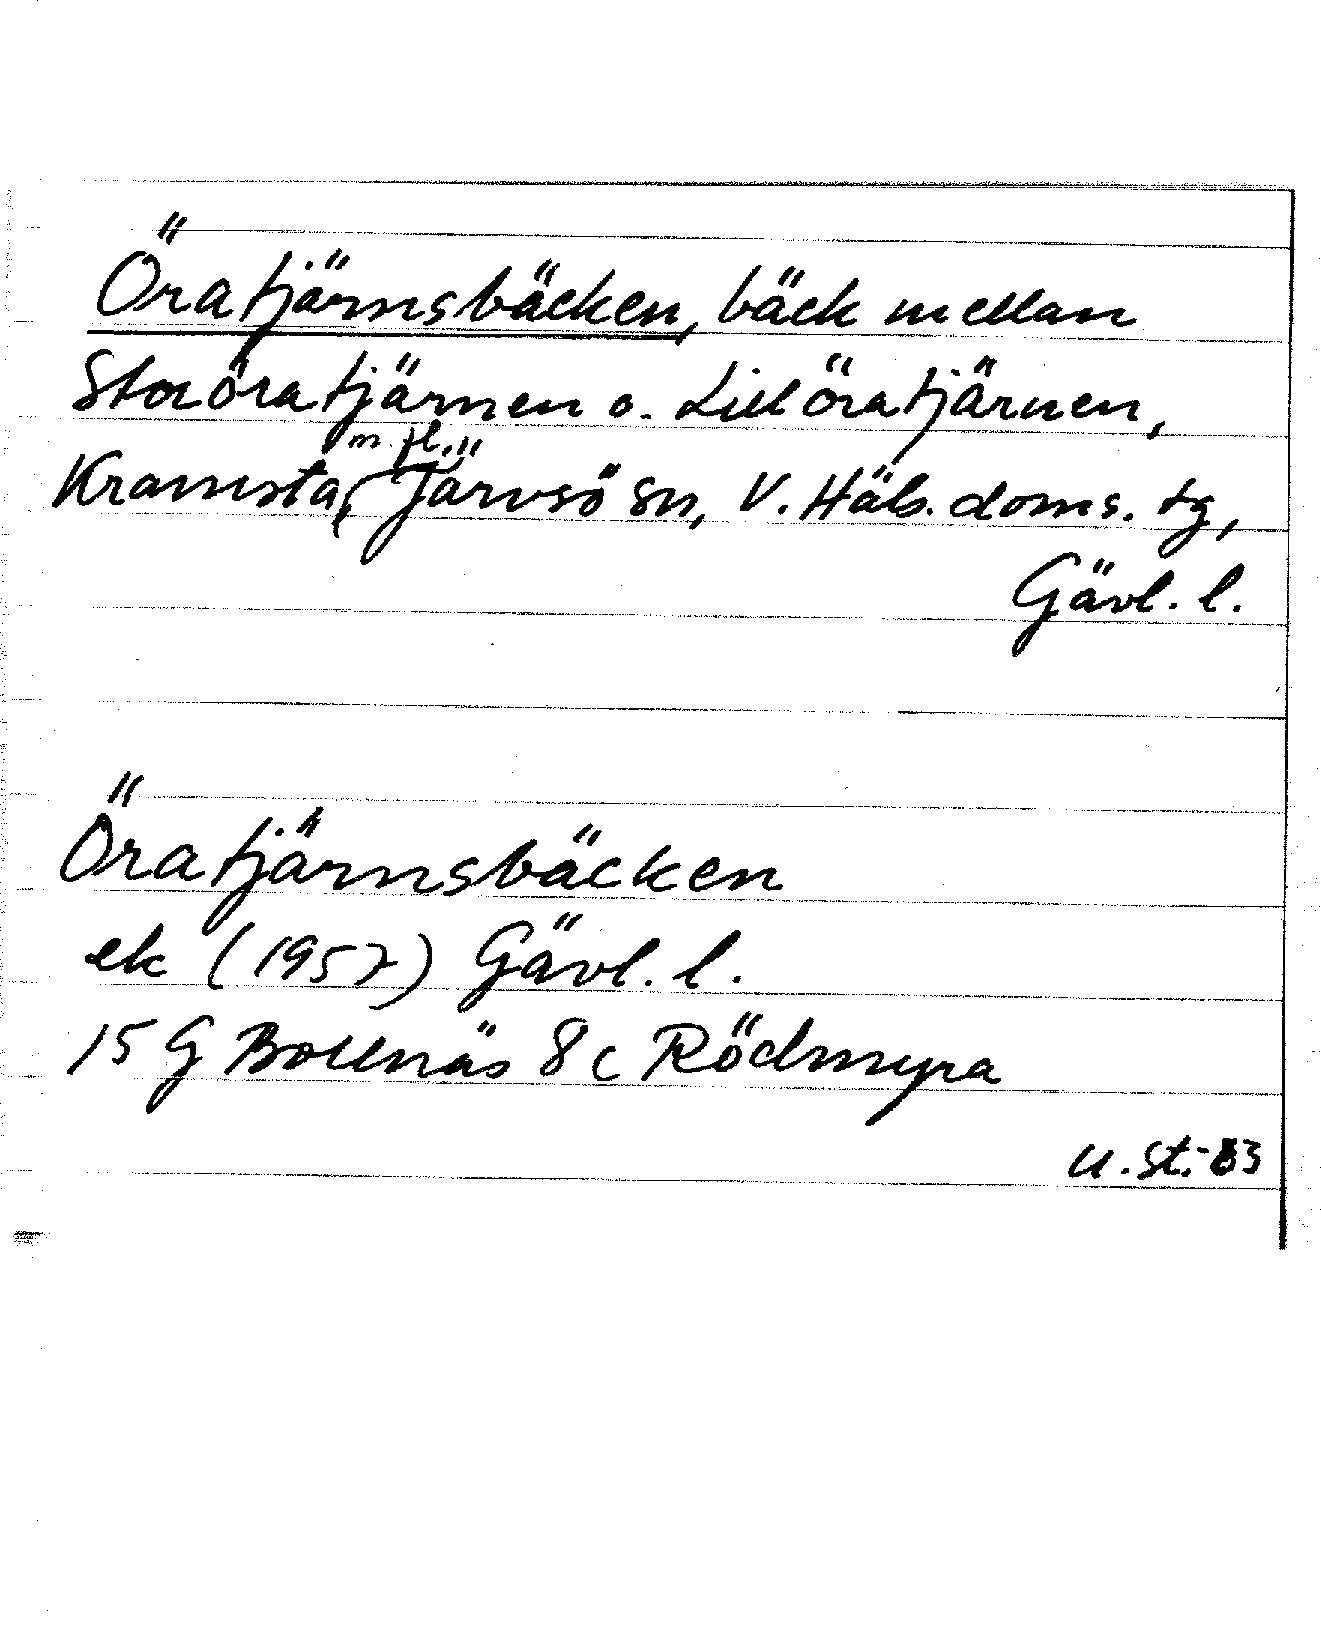 Öratjärnsbäcken, bäck mellan
Storöratjärnen o. Lillöratjärnen,
Kramsta m. fl., Järvsö sn, V. Häls. doms. tg,
Gävl. l.
Öratjärnsbäcken
ek (1957) Gävl. l.
15 G Bollnäs 8 c Rödmyra
U. St.-83